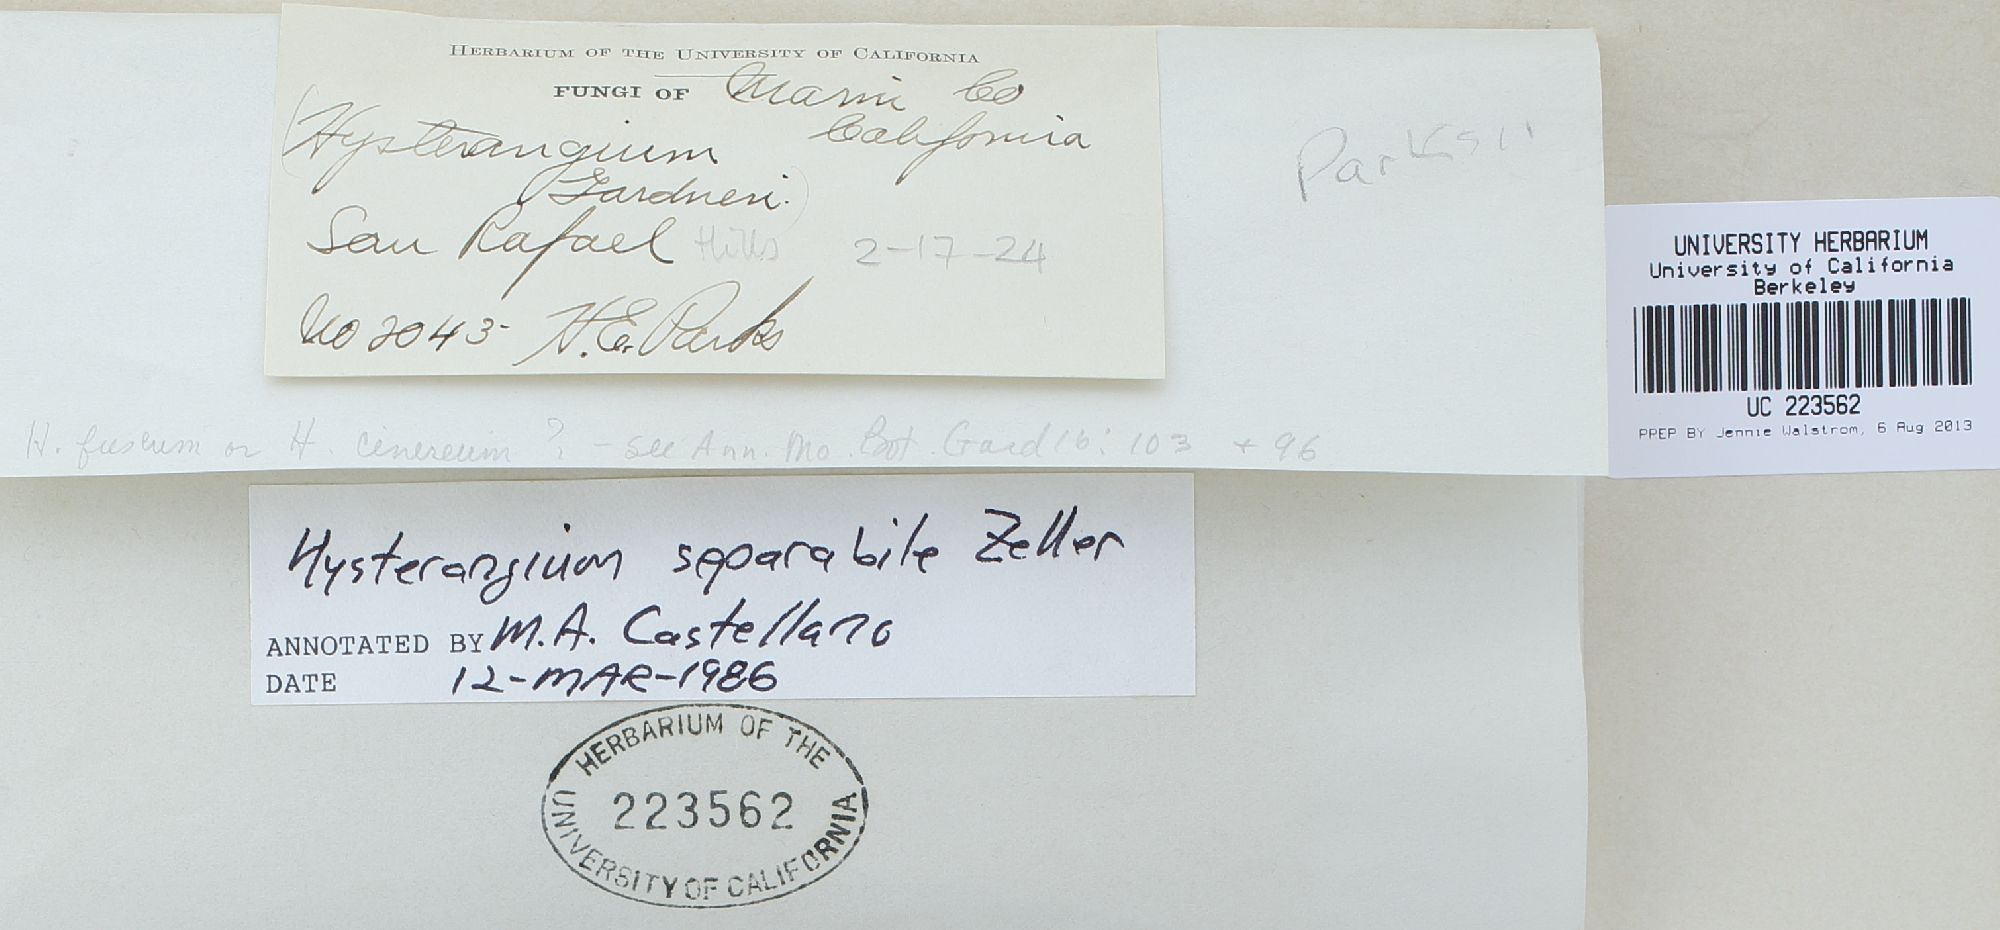 HERBARIUM OF THE UNIVERSITY OF CALIFORNIA
FUNGI OF Marin Co
California
(Hysterangium
Gardneri.)
San Rafael Hills 2-17-24
No 2043- H.E. Parks
Parksii
H. fuscum or H. cinereum ? - see Ann. Mo. Bot. Gard 16: 103 + 96
UNIVERSITY HERBARIUM
University of California
Berkeley
UC 223562
PREP BY Jennie Walstrom, 6 Aug 2013
Hysterangium separabile Zeller
ANNOTATED BY M.A. Castellano
DATE 12-MAR-1986
HERBARIUM OF THE
223562
UNIVERSITY OF CALIFORNIA